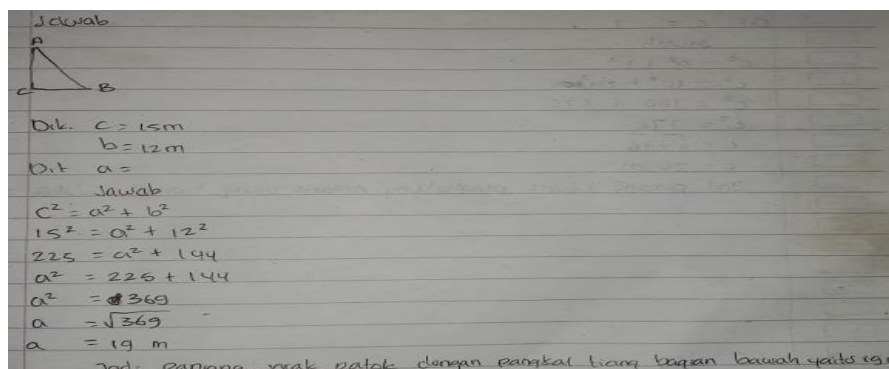 Jawab
A
C B
Dik. c = 15m
b = 12m
Dit a =
Jawab
c² = a² + b²
15² = a² + 12²
225 = a² + 144
a² = 225 + 144
a² = 369
a = √369
a = 19 m
Jadi panjang jarak patok dengan pangkal tiang bagian bawah yaitu 19